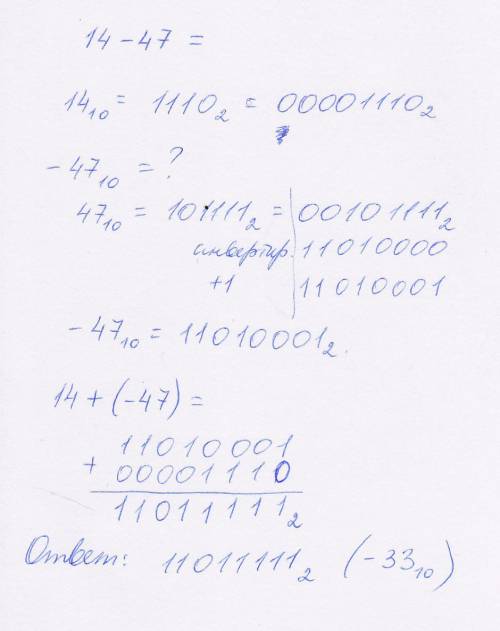 14 - 47 =
14₁₀ = 1110₂ = 00001110₂
- 47₁₀ = ?
47₁₀ = 101111₂ = 00101111₂
инвертир. 11010000
+1 11010001
- 47₁₀ = 11010001₂.
14 + (-47) =
11010001
+ 00001110
11011111₂
Ответ: 11011111₂ (-33₁₀)